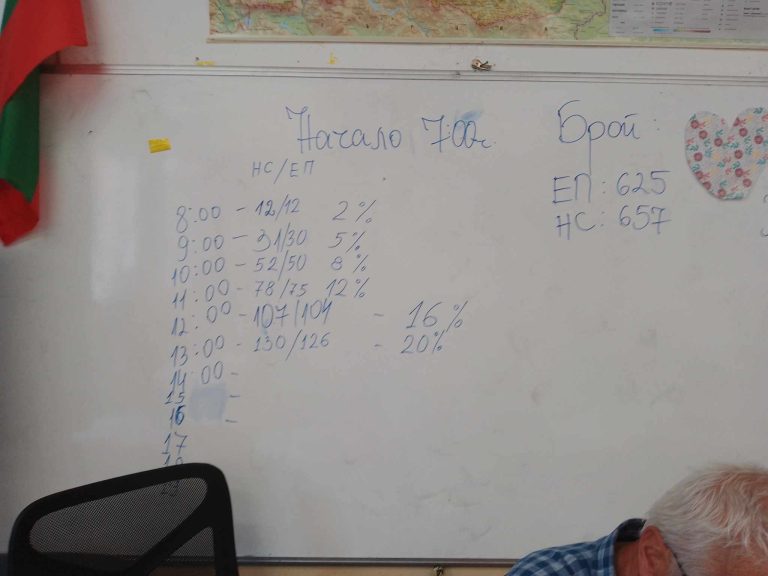 Начало 7:00ч.
Брой:
ЕП: 625
НС: 657
НС/ЕП
8:00 - 12/12 2%
9:00 - 31/30 5%
10:00 - 52/50 8%
11:00 - 78/75 12%
12:00 - 107/104 - 16%
13:00 - 130/126 - 20%
14:00 -
15 -
16 -
17